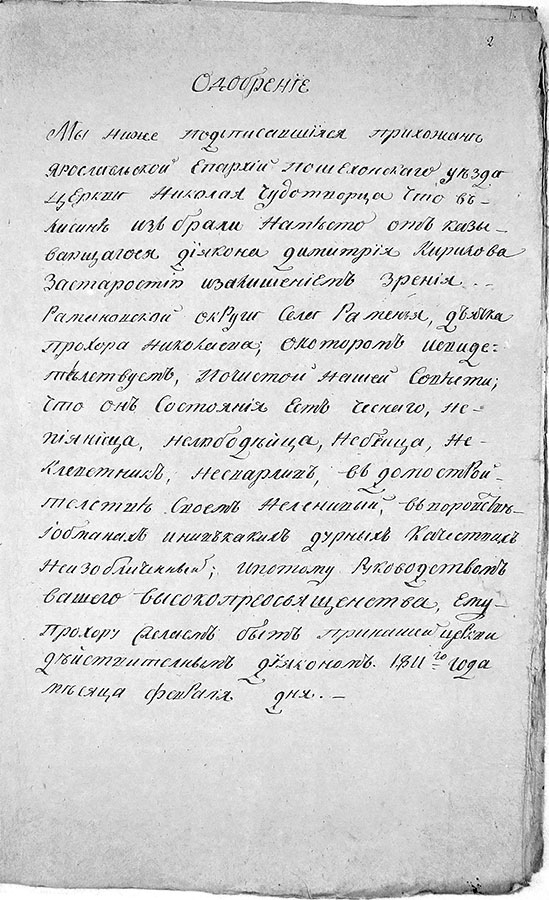 2
Одобренїе
Мы ниже подписавшїяся прихожане
ярославльской Епархїй пошехонскаго уѣзда
церкви Николая чудотворца что въ
лисинѣ избрали намѣсто отъ казы-
вающагося дїякона димитрїя Кирилова
Застаростїю излишенїемъ зренїя ..
Рамановской округи Села Раменья, дьячка
прохора Николаева; окоторомъ исвиде-
тельствуемъ, почистой нашей Совѣсти;
что онъ Состоянїя Есть Чеснаго, не-
пїяница, нелюбодѣица, Небїица, не-
клеветникъ, несварливъ, въ домострой-
тельствѣ Своемъ Неленивый, въ воровствѣ
їобманахъ иниъкакихъ дурныхъ качествахъ
Неизобличенный; ипотому Руководствомъ
вашего высокопреосвященства, Ему-
прохору желаемъ быть принашей церкви
дѣйствительнымъ дїякономъ. 1811го года
мѣсяца февраля дня. —